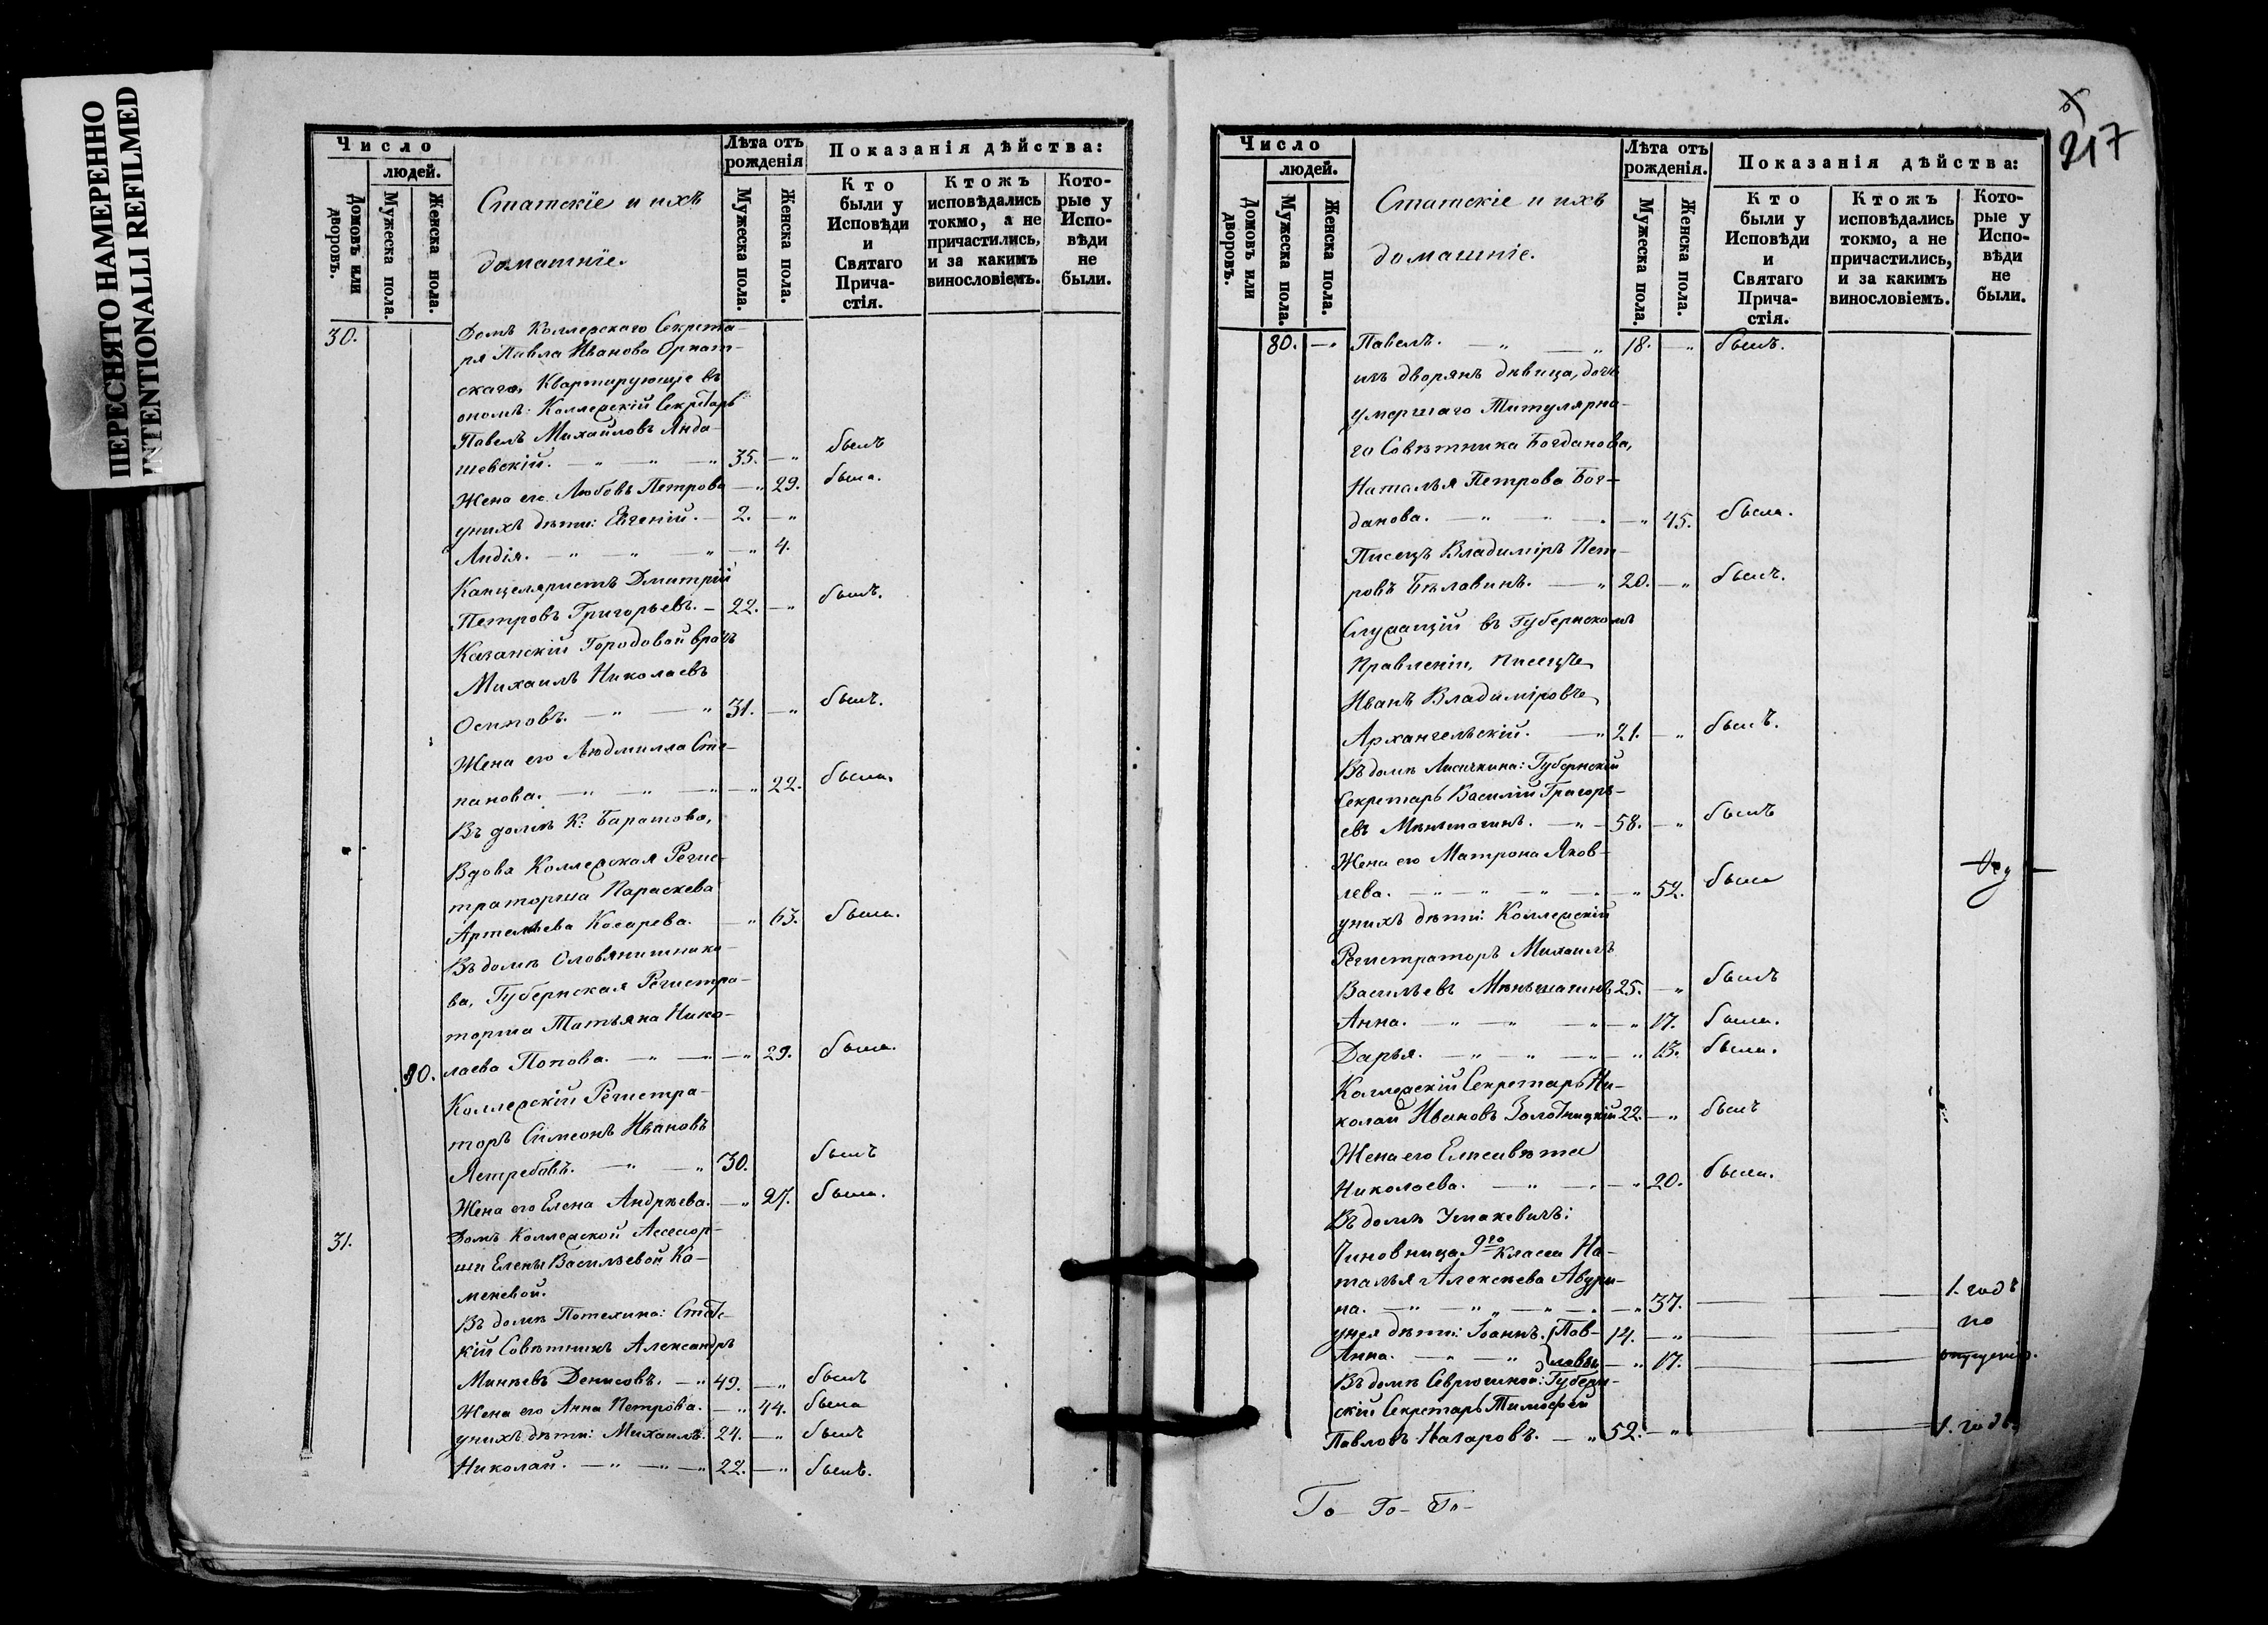 ПЕРЕСНЯТО НАМЕРЕННО
INTENTIONALLI REFILMED
Число
людей.
Домовъ или дворовъ.
Мужеска пола.
Женска пола.
Статскіе и ихъ
домашніе.
Лѣта отъ рожденія
Мужеска пола.
Женска пола.
Показанія дѣйства:
Кто были у Исповѣди и Святаго Прича-стія.
Ктожъ исповѣдались токмо, а не причастились, и за какимъ винословіемъ.
Кото-рые у Испо-вѣди не были.
30. Домъ Коллежскаго Секрета-
ря Павла Иванова Орнат-
скаго, Квартирующіе въ
ономъ: Коллежскій Секретарь
Павелъ Михайловъ Янда-
шевскій. — „ — „ — „ 35. — „ былъ
Жена его Любовь Петрова — „ 29. была.
у нихъ дѣти: Евгеній. — 2. — „
Лидія. — „ — „ — „ — „ 4.
Канцеляристъ Дмитрій
Петровъ Григорьевъ. — 22. — „ былъ.
Казанскій Городовой врачъ
Михаилъ Николаевъ
Осиповъ. — „ — „ 31. — „ былъ.
Жена его Людмилла Сте-
панова. — „ — „ — „ — „ 22. была.
Въ домѣ К. Баратова,
Вдова Коллежская Регис-
траторша Параскева
Артемьева Косарева. — „ 63. была.
Въ домѣ Оловянишнико-
ва, Губернская Регистра-
торша Татьяна Нико-
80. лаева Попова. — „ — „ — „ 29. была.
Коллежскій Регистра-
торъ Симеонъ Ивановъ
Ястребовъ. — „ — „ 30. былъ
Жена его Елена Андрѣева. — „ 27. была.
31. Домъ Коллежской Ассесор-
ши Елены Васильевой Ка-
меневой.
Въ домѣ Потехина: Статс-
кій Совѣтникъ Александръ
Минѣевъ Денисовъ. — „ 49. — „ былъ
Жена его Анна Петрова. — „ 44. была
у нихъ дѣти: Михаилъ. 24. — „ былъ
Николай. — „ — „ — „ 22. — „ былъ.
217
Число
людей.
Домовъ или дворовъ.
Мужеска пола.
Женска пола.
Статскіе и ихъ
домашніе.
Лѣта отъ рожденія.
Мужеска пола.
Женска пола.
Показанія дѣйства:
Кто были у Исповѣди и Святаго Прича-стія.
Ктожъ исповѣдались токмо, а не причастились, и за какимъ винословіемъ.
Кото-рые у Испо-вѣди не были.
80. — „ Павелъ. — „ — „ 18. — „ былъ.
изъ дворянъ дѣвица, дочь
умершаго Титулярна-
го Совѣтника Богданова,
Наталья Петрова Бог-
данова. — „ — „ — „ 45. была.
Писецъ Владиміръ Пет-
ровъ Бѣлавинъ. — „ 20. — „ былъ.
Служащій въ Губернскомъ
Правленіи, писецъ
Иванъ Владиміровъ
Архангельскій. — „ 21. — „ былъ.
Въ домѣ Лисичкина: Губернскій
Секретарь Василій Григорь-
евъ Меньшагинъ. — „ — 58. — „ былъ
Жена его Матрона Яков-
лева. — „ — „ — „ — „ 52. была
у нихъ дѣти: Коллежскій
Регистраторъ Михаилъ
Васильевъ Меньшагинъ 25. — „ былъ
Анна. — „ — „ — „ — „ 17. была.
Дарья. — „ — „ — „ — „ 13. была.
Коллежскій Секретарь Ни-
колай Ивановъ Золотницкій 22. — „ былъ
Жена его Елисавета
Николаева. — „ — „ — „ 20. была.
Въ домѣ Умакевичъ:
Чиновница 9го класса На-
талья Алексѣева Авдуи-
на. — „ — „ — „ — „ 37. — — 1. годъ
у нея дѣти: Іоаннъ. Пав- 14. — „ — — по
Анна. — „ — „ ловы — „ 17. — — опущенію.
Въ домѣ Севрюгиной: Губерн-
скій Секретарь Тимоѳей
Павловъ Назаровъ. — „ 52. — „ — — 1. годъ.
Го— Го— Го—